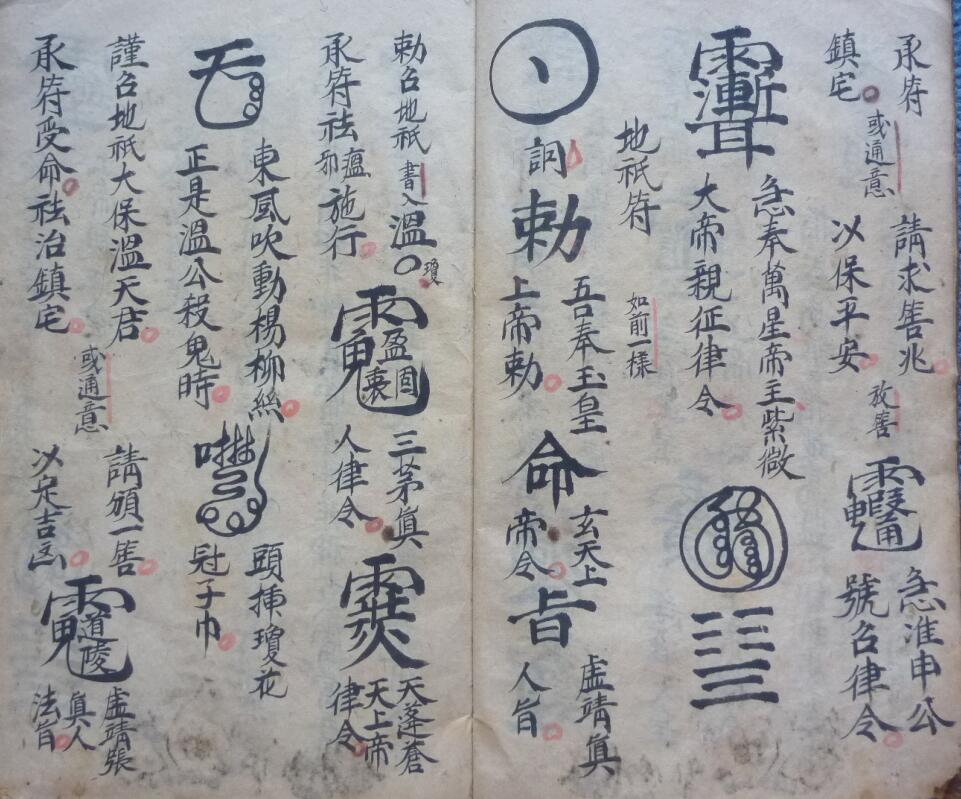 承符
鎮宅
或通意
請求善兆
以保平安
放筶
急准申公
號召律令
急奉萬星帝主紫微
大帝親征律令
地祇符
如前一樣
詞
勅
吾奉玉皇
上帝勅
命
玄天上
帝令
旨
虛靖真
人旨
勅召地祇
書入
溫〇
瓊
承符祛瘟邪施行
三茅眞
人律令
天蓬蒼
天上帝
律令
東風吹動楊柳絲
正是溫公殺鬼時
頭揷瓊花
冠子巾
謹召地祇大保溫天君
承符受命祛治鎮宅
或通意
請頒一筶
以定吉凶
道陵
虛靖張
真人
法旨